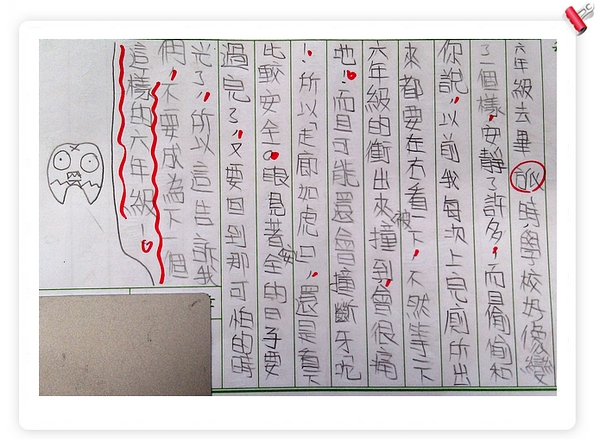 六年級去畢旅時,學校好像變
了一個樣,安靜了許多,而且偷偷和
你說,以前我每次上完廁所出
來都要在右看一下,不然等一下
六年級的衝出來被撞到,會很痛
地!而且可能還會撞斷牙呢
!所以走廊如虎口,還是
比較安全。眼見著安全的日子要
過完了,又要回到那可怕的時
光了,所以這告訴我
們,不要成為下一個
這樣的六年級!